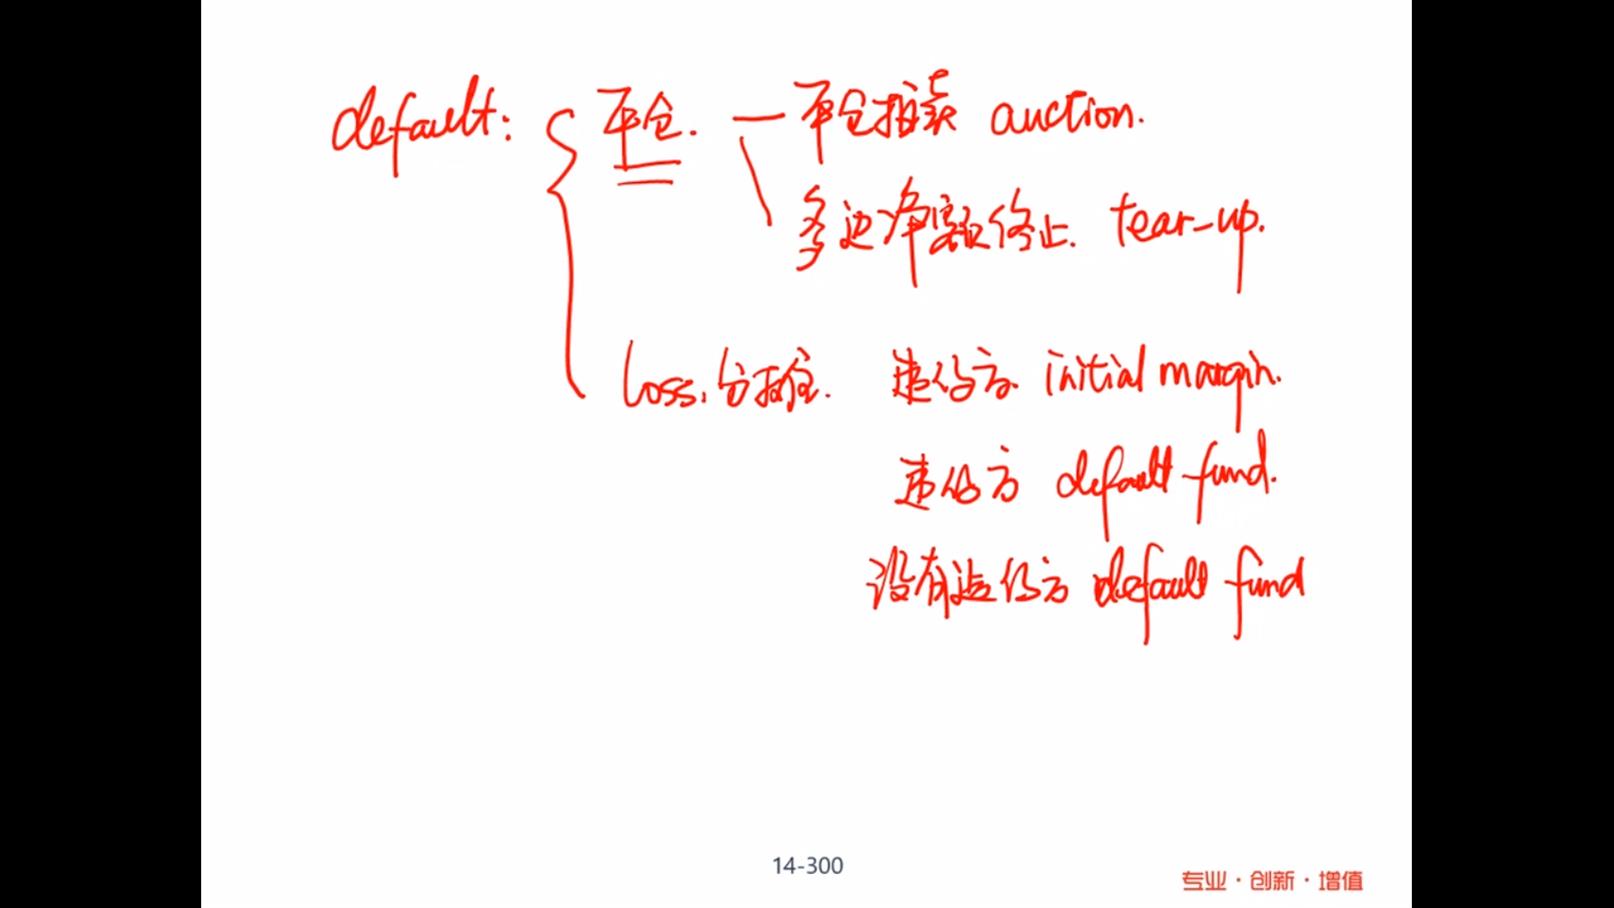 default: 平仓. 平仓拍卖 auction.
多边净额终止. tear-up.
loss. 分摊. 违约方. initial margin.
违约方 default fund.
没有违约方 default fund
14-300
专业·创新·增值